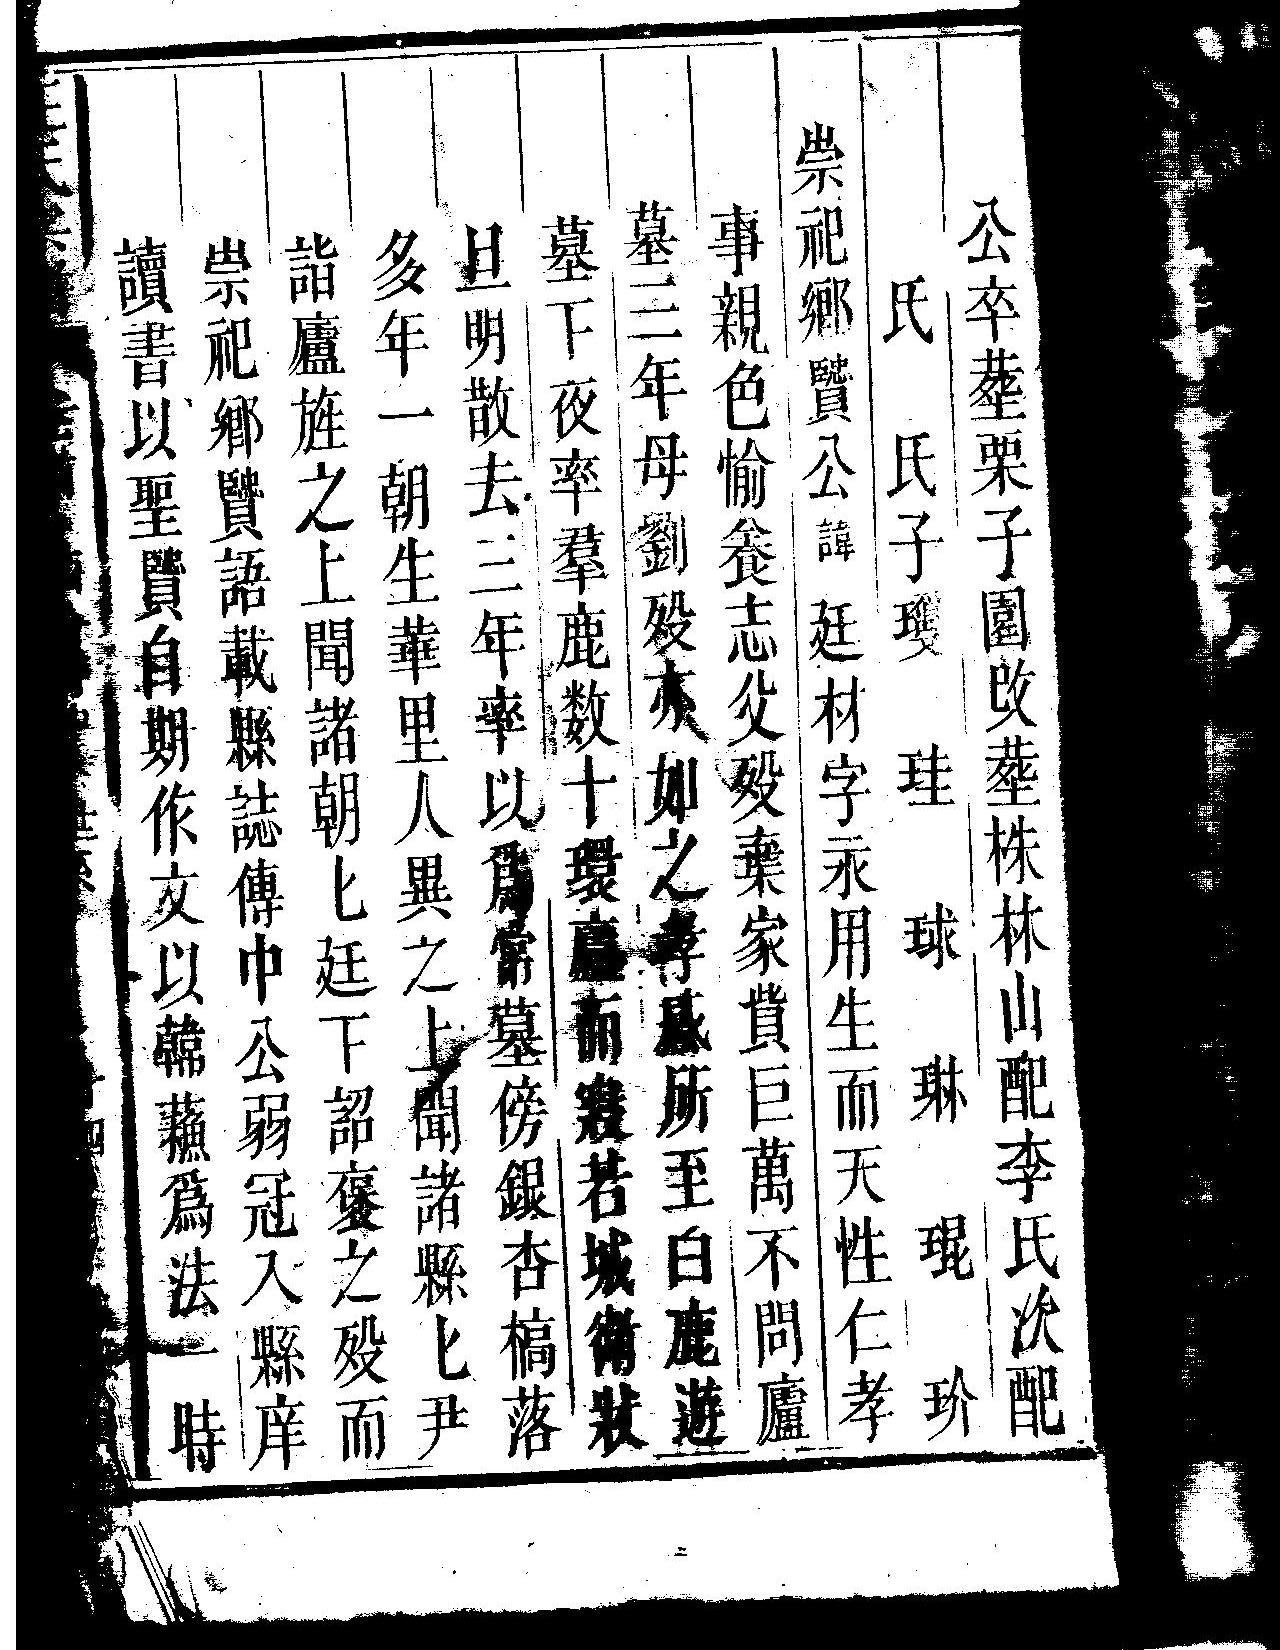 公卒塟栗子園改塟株林山配李氏次配
氏　氏子瓊　珪　球　琳　琨　玠
崇祀鄉賢公諱　廷材字永用生而天性仁孝
事親色愉養志父歿棄家貲巨萬不問廬
墓三年母劉歿亦如之孝感所至白鹿遊
墓下夜率羣鹿数十環廬而寢若城衛狀
旦明散去三年率以爲常墓傍銀杏槁落
多年一朝生華里人異之上聞諸縣匕尹
詣廬旌之上聞諸朝匕廷下詔褒之歿而
崇祀鄉賢語載縣誌傳中公弱冠入縣庠
讀書以聖賢自期作文以韓蘓爲法一時